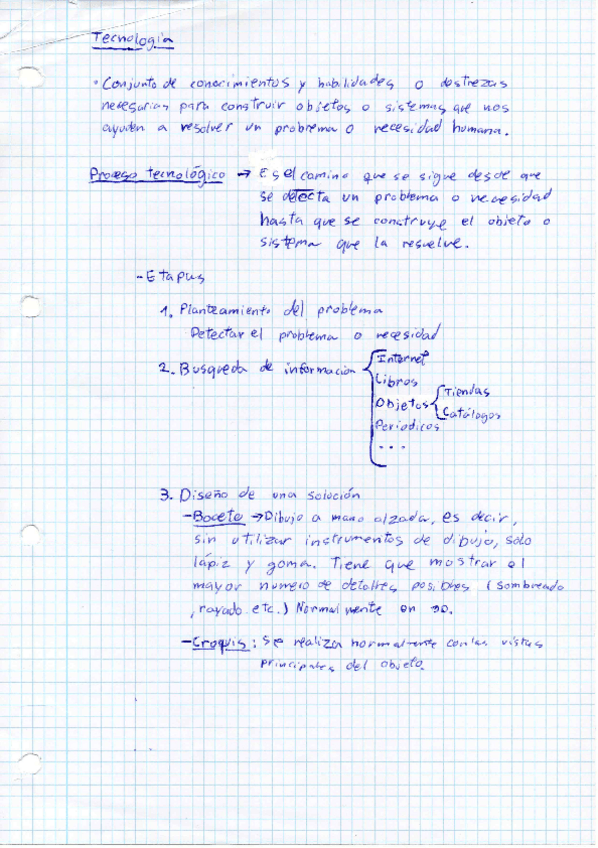 Tecnología
• Conjunto de conocimientos y habilidades o destrezas
necesarias para construir objetos o sistemas que nos
ayuden a resolver un problema o necesidad humana.
Proceso tecnológico → Es el camino que se sigue desde que
se detecta un problema o necesidad
hasta que se construye el objeto o
sistema que la resuelve.
- Etapas
1. Planteamiento del problema
Detectar el problema o necesidad
2. Busqueda de información { Internet
Libros
Objetos { Tiendas
Catálogos
Periodicos
...
3. Diseño de una solución
- Boceto → Dibujo a mano alzada, es decir,
sin utilizar instrumentos de dibujo, solo
lápiz y goma. Tiene que mostrar el
mayor numero de detalles posibles (sombreado
, rayado etc.) Normalmente en 3D.
- Croquis: Se realiza normalmente con las vistas
principales del objeto.